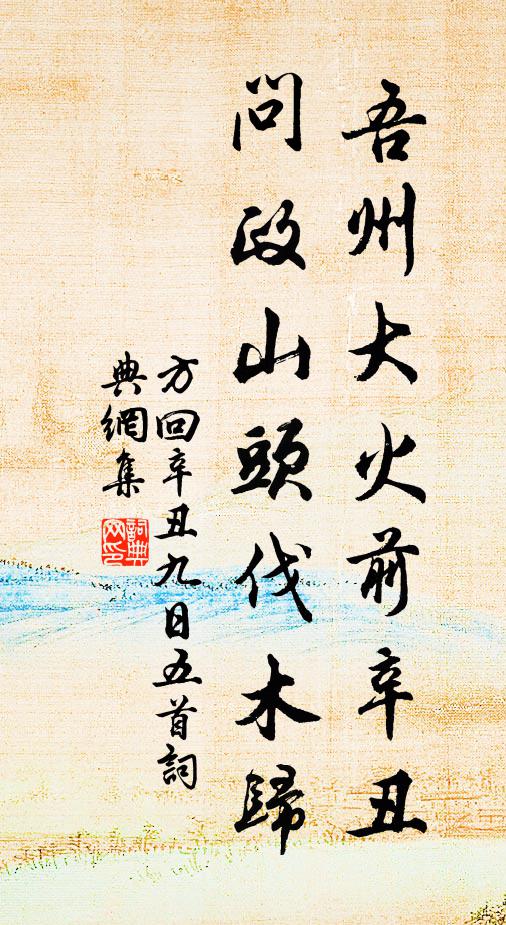 吾州大火前辛丑
問政山頭伐木歸
方回辛丑九日五首詞
典網集
詞典网印